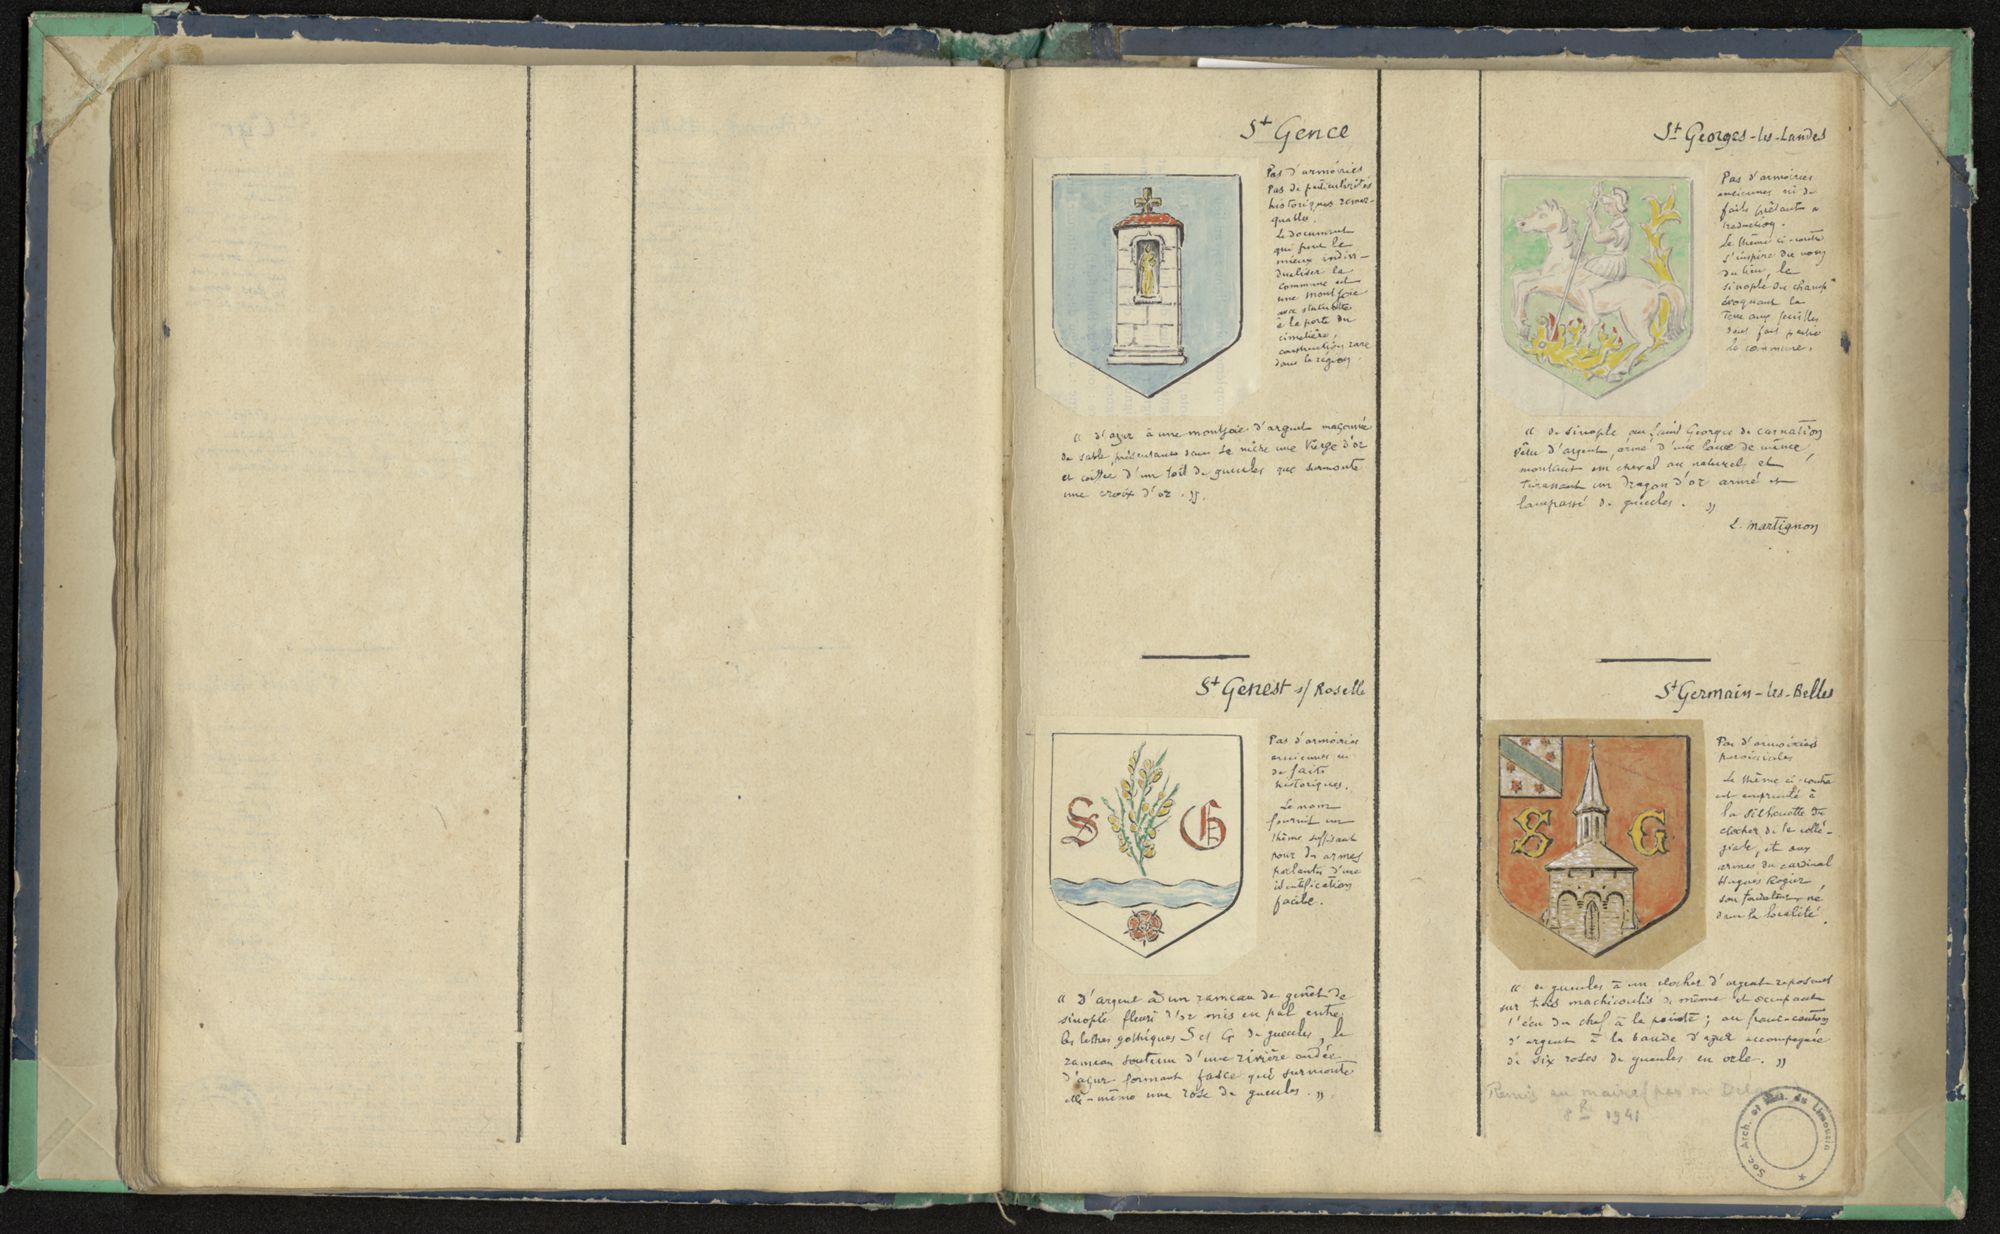 St Gence
Pas d'armoiries
Pas de particularités
historiques remar-
quables.
Le document
qui peut le
mieux indivi-
dualiser la
commune est
une montjoie
avec statuette
à la porte du
cimetière,
construction rare
dans la région.
« d'azur à une montjoie d'argent maçonnée
de sable, présentant dans sa niche une Vierge d'or
et coiffée d'un toit de gueules que surmonte
une croix d'or. »
St Genest s/ Roselle
Pas d'armoiries
anciennes ni
de faits
historiques.
Le nom
fournit un
thème suffisant
pour des armes
parlantes d'une
identification
facile.
S G
« D'argent à un rameau de genêt de
sinople fleuri d'or mis en pal entre
les lettres gothiques S et G de gueules, le
rameau soutenu d'une rivière ondée
d'azur formant fasce qui surmonte
elle-même une rose de gueules. »
St Georges-les-Landes
Pas d'armoiries
anciennes ni de
faits prêtant à
traduction.
Le thème ci-contre
s'inspire du nom
du lieu, le
sinople du champ
évoquant la
dont fait partie
la commune.
« de sinople au Saint Georges de carnation
vêtu d'argent, armé d'une lance de même,
montant un cheval au naturel et
terrassant un dragon d'or armé et
lampassé de gueules. »
L. Martignon
St Germain-les-Belles
Pas d'armoiries
paroissiales
Le thème ci-contre
est emprunté à
la silhouette du
clocher de la collé-
giale, et aux
armes du cardinal
Hugues Rogier,
son fondateur, né
dans la localité.
S G
« de gueules à un clocher d'argent reposant
sur trois machicoulis de même et occupant
l'écu du chef à la pointe ; au franc-canton
d'argent à la bande d'azur accompagnée
de six roses de gueules en orle. »
Remis au maire par M.
1941
Soc. Arch. et Hist. du Limousin